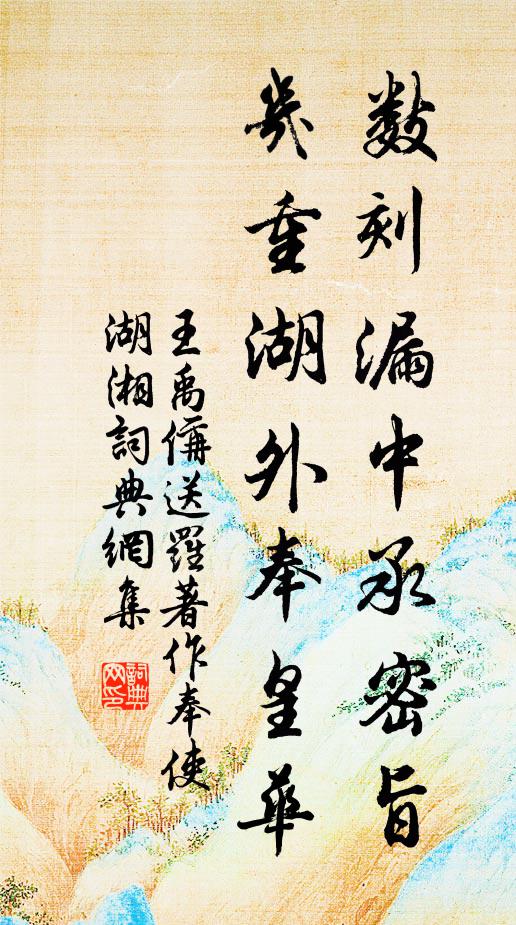 數刻漏中承密旨
幾重湖外奉皇華
王禹偁送羅著作奉使
湖湘詞典網集
詞典
网印